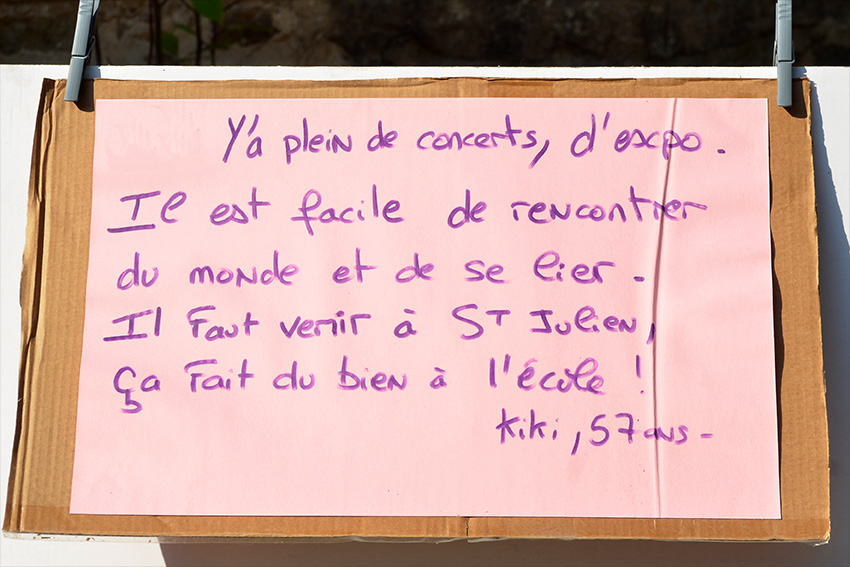 Y'a plein de concerts, d'expo.
Il est facile de rencontrer
du monde et de se lier.
Il faut venir à ST Julien,
ça fait du bien à l'école !
Kiki, 57 ans -